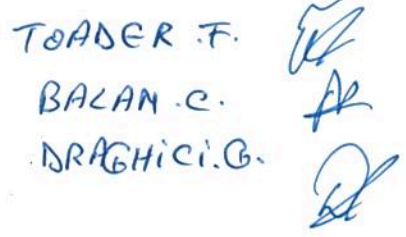 TOADER .F.
BALAN .C.
DRAGHICI.G.